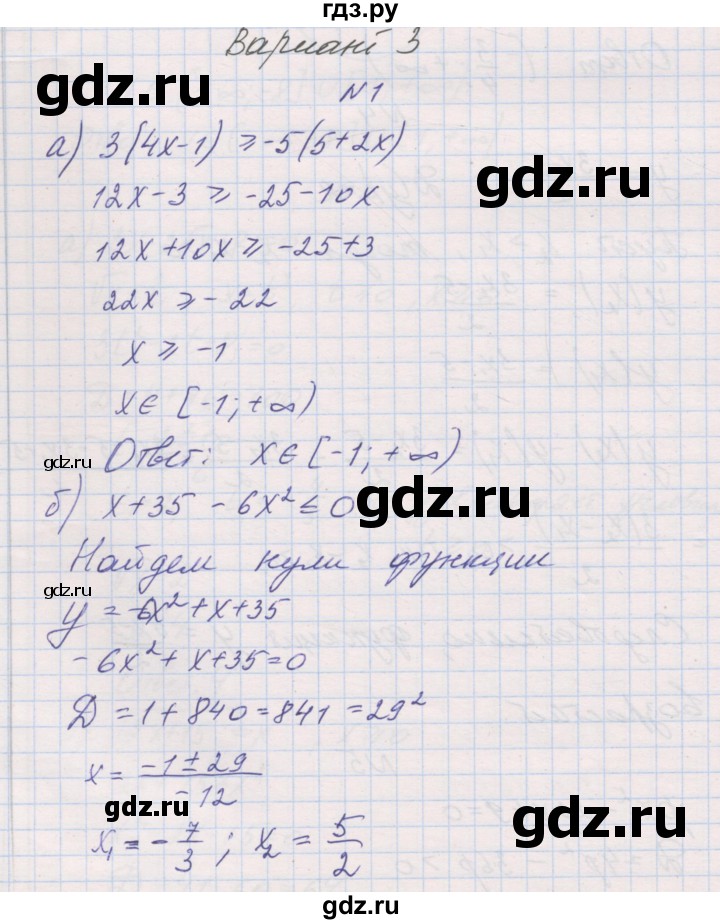 гдз.ру
Вариант 3
gdz.ru gdz.ru
N1
а) 3(4x-1) ⩾ -5(5+2x)
gdz.ru
12x-3 ⩾ -25-10x
12x+10x ⩾ -25+3
22x ⩾ -22
x ⩾ -1
x∈ [-1; +∞)
gdz.ru
Ответ: x∈[-1; +∞)
б) x+35 - 6x² ≤ 0
gdz.ru
Найдем нули функции
gdz.ru
y = -6x²+x+35
-6x²+x+35=0
Д = 1+840=841=29²
x = (-1±29)/(-12)
gdz.ru gdz.ru
x₁ = -7/3; x₂ = 5/2
gdz.ru